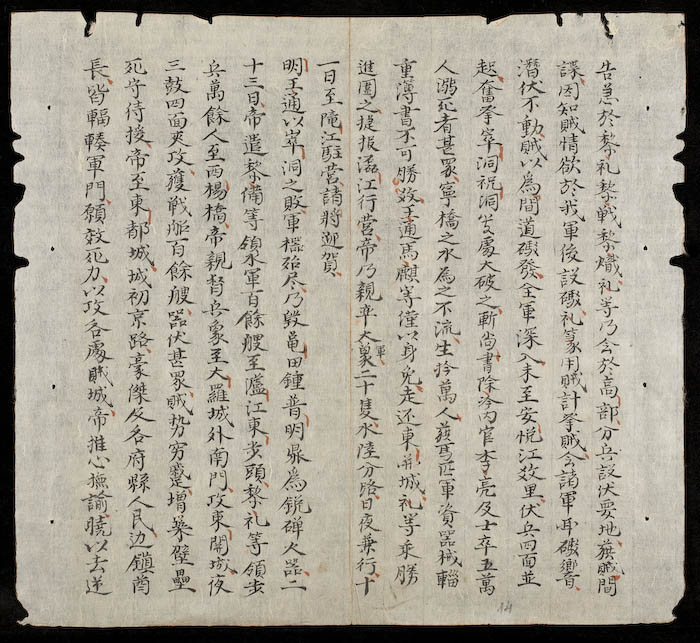 告急於黎礼黎戦黎熾礼等乃会於高部分兵設伏要地獲賊間
諜因知賊情欲於我軍後設礟礼用賊計賊会諸軍耳礟嚮
潛伏不動賊以為間道礟發全軍深入未至安悅江效里伏兵四面並
起奮拳宰洞祝洞等處大破之斬尚書陳洽内官李亮及士卒五萬
人溺死者甚眾寧橋之水為之不流生拎萬人獲馬匹軍資器械輜
重簿書不可勝效王通馬麒等僅以身免走还東城礼等乘勝
進圍之捷报江行营帝乃親率大軍象二十隻水陸分路日夜兼行十
一日至江駐营諸將迎賀
明王通以宰洞之敗軍器殆尽乃毀亀田鍾普明鼎為銃磾火器二
十三日帝遣黎備等領水軍百餘艘至瀘江東步頭黎礼等領步
兵萬餘人至西楊橋帝親督兵象至大羅城外南門攻東開城夜
三鼓四面夾攻獲戦船百餘艘器伏甚眾賊势穷蹙增築壁壘
死守待援帝至東都城城初京路豪傑及各府縣人民边鎮酋
長皆輻輳軍門願效死力以攻各處賊城帝推心撫諭曉以去逆
14